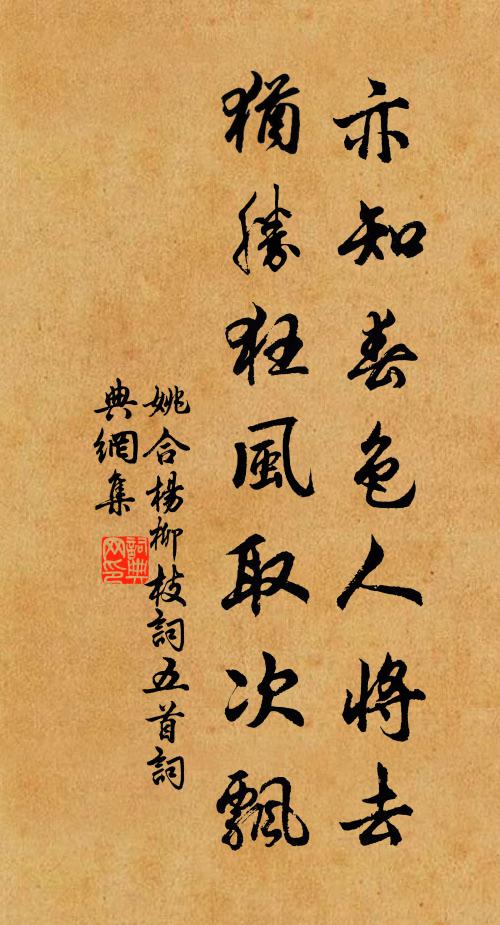 亦知春色人將去
猶勝狂風取次飄
姚合楊柳枝詞五首詞
典網集
詞典網印